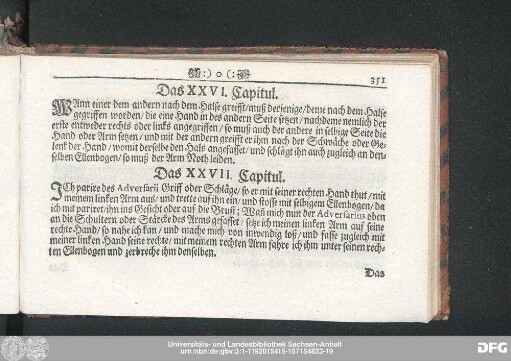 :) o (: 351
Das XXVI. Capitul.
WAnn einer dem andern nach dem Halse greifft/muß derjenige/deme nach dem Halse
gegriffen worden/ die eine Hand in des andern Seite setzen/ nachdeme nemlich der
erste entweder rechts oder links angegriffen/ so muß auch der andere in selbige Seite die
Hand oder Arm setzen/ und mit der andern greifft er ihm nach der Schwäche oder Ge-
lenk der Hand/ womit derselbe den Hals angefasset/ und schlägt ihn auch zugleich an den-
selben Ellenbogen/ so muß der Arm Noth leiden.
Das XXVII. Capitul.
ICh parire des Adversarii Griff oder Schläge/ so er mit seiner rechten Hand thut/ mit
meinem linken Arm aus/ und trette auf ihn ein/ und stosse mit selbigem Ellenbogen/ da
ich mit pariret/ihn ins Gesicht oder auf die Brust; Wañ mich nun der Adversarius oben
an die Schultern oder Stärcke des Arms gefasset/ setze ich meinen linken Arm auf seine
rechte Hand/ so nahe ich kan/ und mache mich von inwendig loß/ und fasse zugleich mit
meiner linken Hand seine rechte/ mit meinem rechten Arm fahre ich ihm unter seinen rech-
ten Ellenbogen und zerbreche ihm denselben.
Das
Universitäts- und Landesbibliothek Sachsen-Anhalt
urn:nbn:de:gbv:3:1-1192015415-157154833-19
DFG